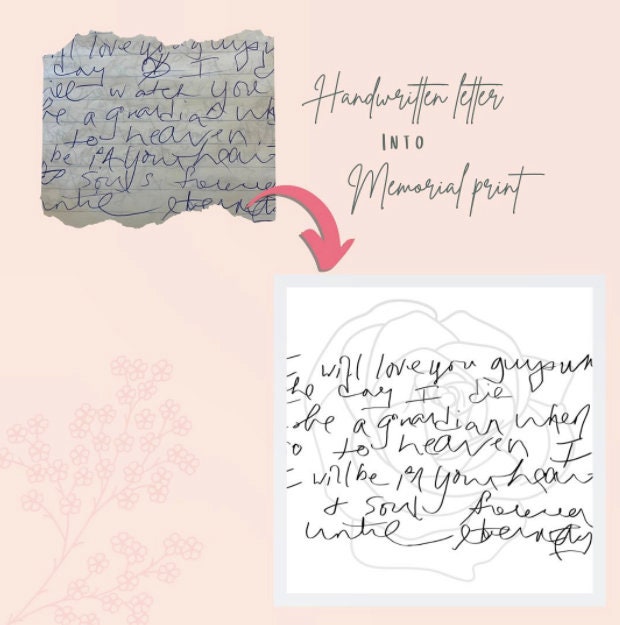 ill love you guys
day I d
ill watch you
be a guardian wh
to heaven
be in your hear
& souls forever
until eternit
Handwritten letter
INTO
Memorial print
I will love you guys un
the day I die
be a guardian when
go to heaven I
I will be in your hear
& soul forever
until eternity